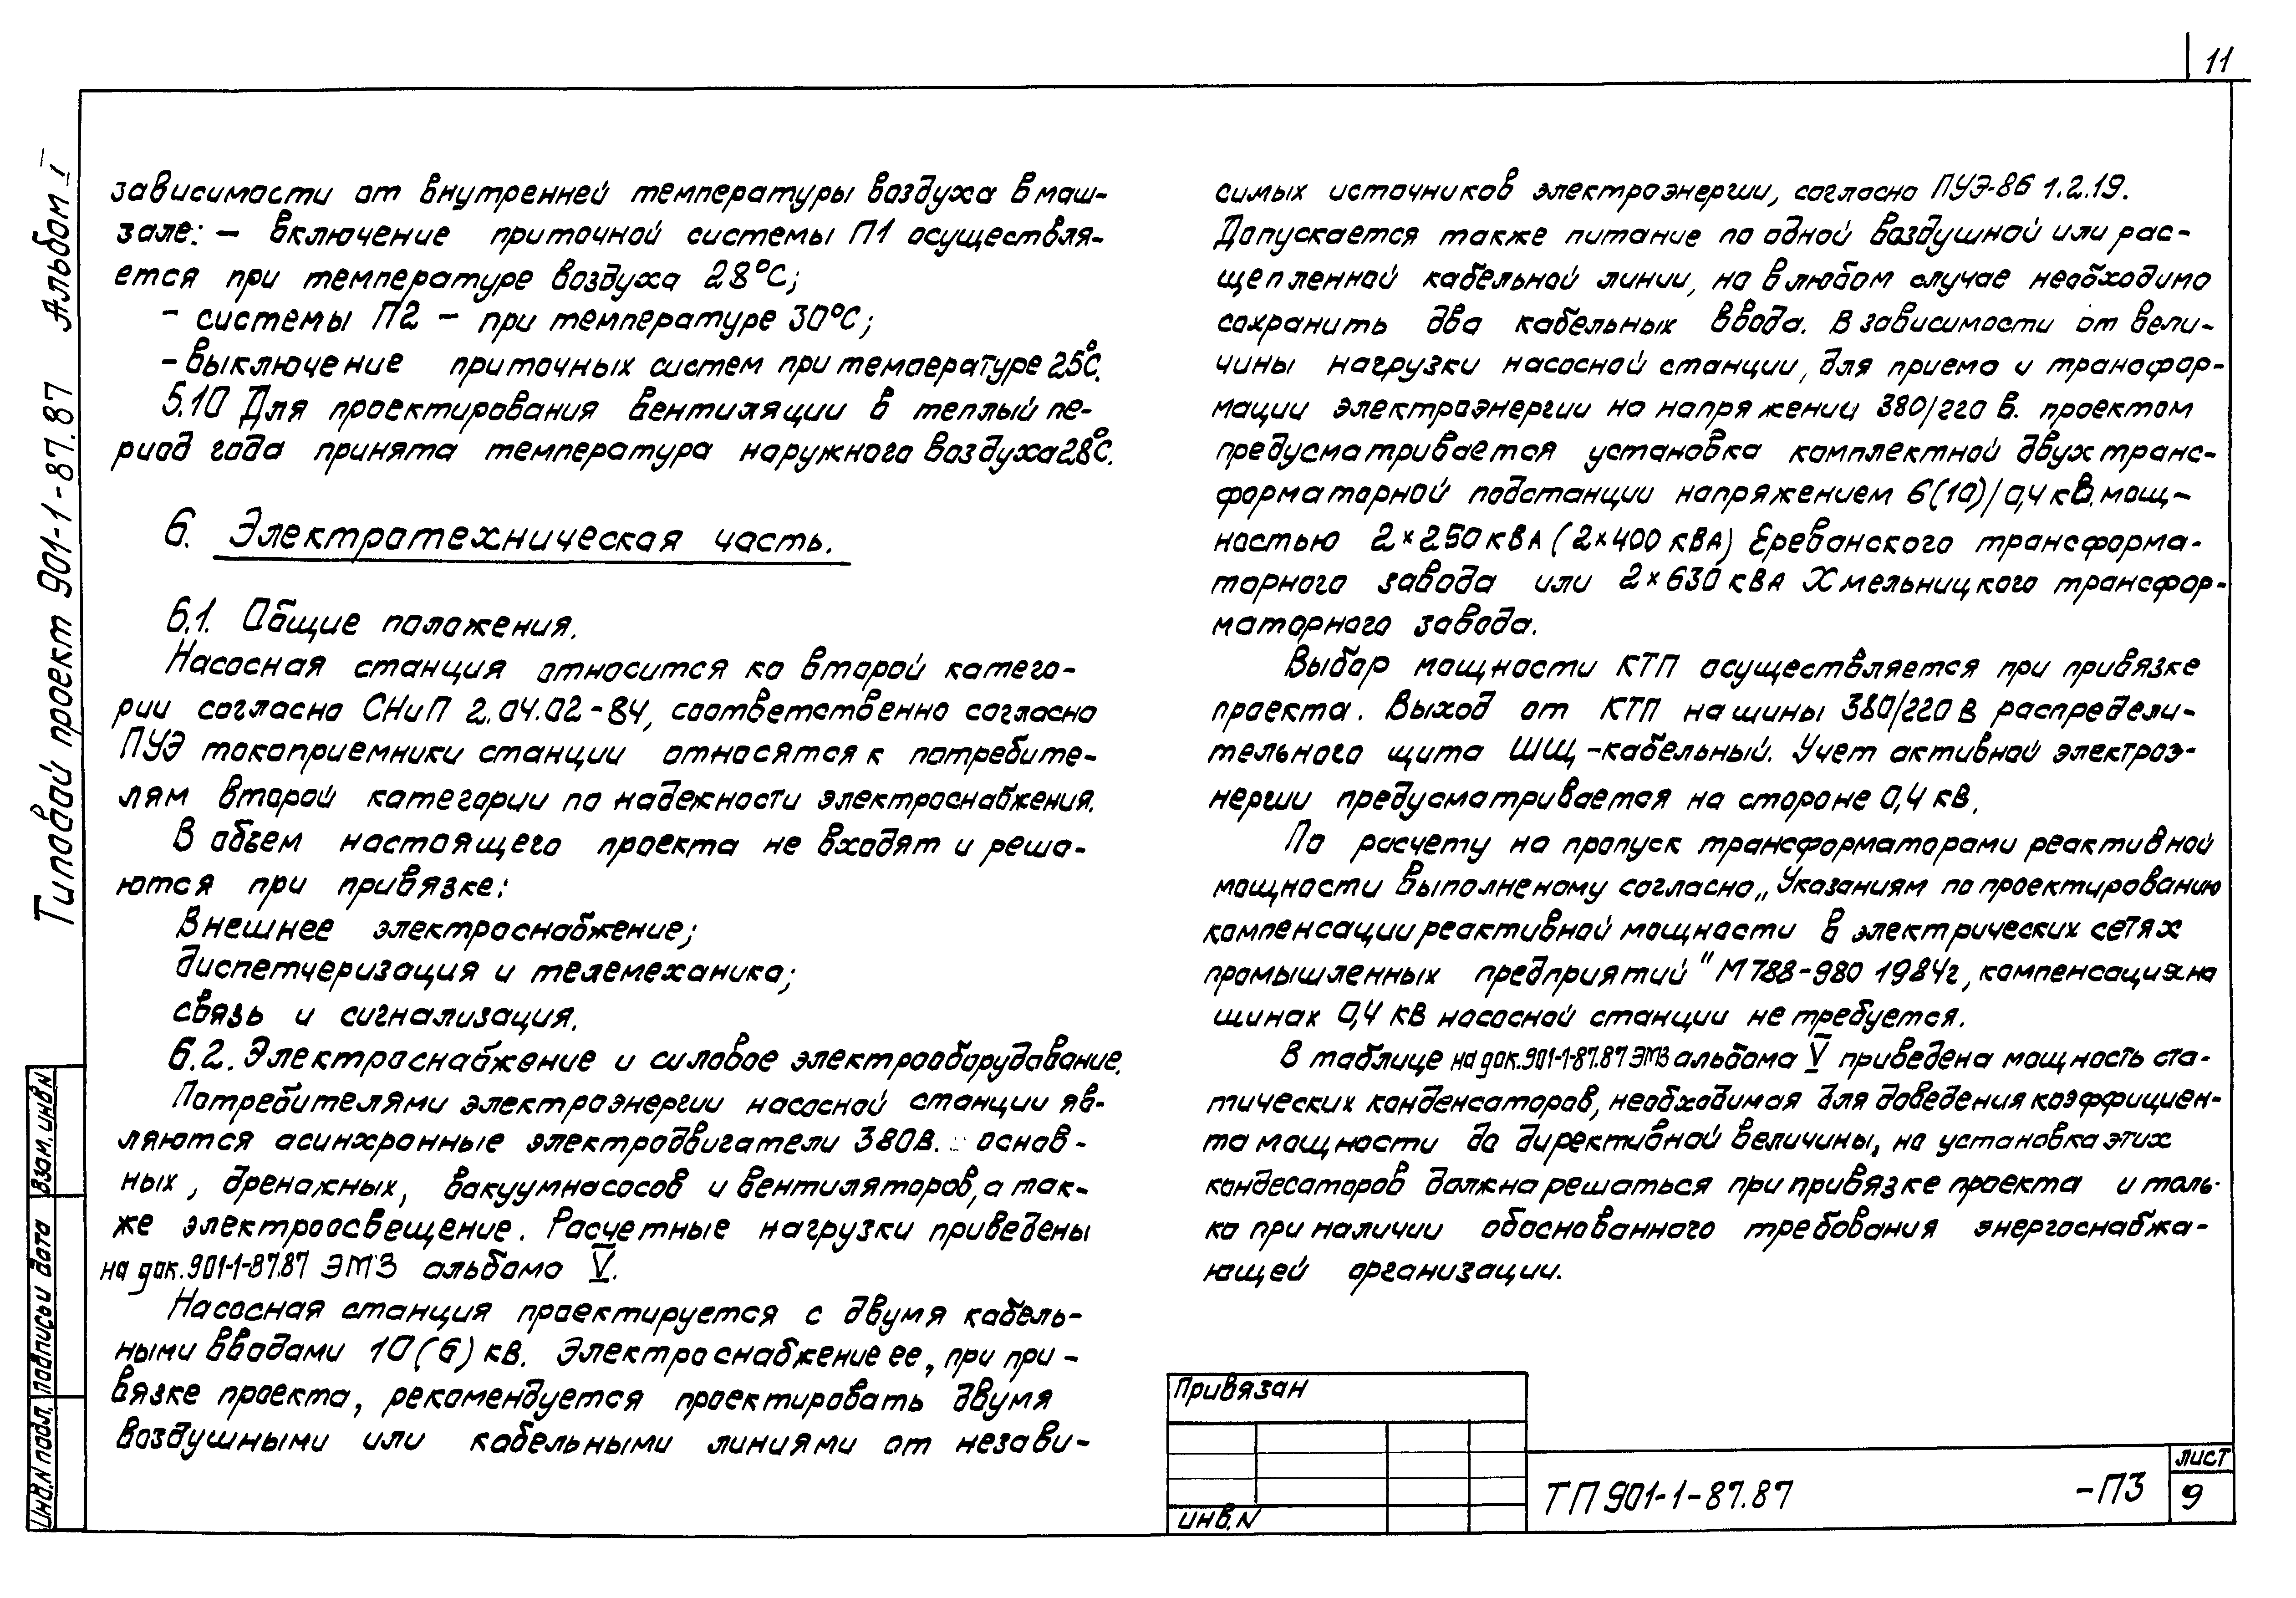 11
Типовой проект 901-1-87.87 Альбом I
зависимости от внутренней температуры воздуха в маш-
зале: - включение приточной системы П1 осуществля-
ется при температуре воздуха 28°С;
- системы П2 - при температуре 30°С;
- выключение приточных систем при температуре 25°С.
5.10 Для проектирования вентиляции в теплый пе-
риод года принята температура наружного воздуха 28°С.
6. Электротехническая часть.
6.1. Общие положения.
Насосная станция относится ко второй катего-
рии согласно СНиП 2.04.02-84, соответственно согласно
ПУЭ токоприемники станции относятся к потребите-
лям второй категории по надежности электроснабжения.
В объем настоящего проекта не входят и реша-
ются при привязке:
Внешнее электроснабжение;
диспетчеризация и телемеханика;
связь и сигнализация.
6.2. Электроснабжение и силовое электрооборудование.
Потребителями электроэнергии насосной станции яв-
ляются асинхронные электродвигатели 380В. основ-
ных, дренажных, вакуумнасосов и вентиляторов, а так-
же электроосвещение. Расчетные нагрузки приведены
на док.901-1-87.87 ЭМ3 альбома V.
Насосная станция проектируется с двумя кабель-
ными вводами 10(6) кв. Электроснабжение ее, при при-
вязке проекта, рекомендуется проектировать двумя
воздушными или кабельными линиями от незави-
симых источников электроэнергии, согласно ПУЭ-86 1.2.19.
Допускается также питание по одной воздушной или рас-
щепленной кабельной линии, но в любом случае необходимо
сохранить два кабельных ввода. В зависимости от вели-
чины нагрузки насосной станции, для приема и трансфор-
мации электроэнергии на напряжении 380/220 В. проектом
предусматривается установка комплектной двухтранс-
форматорной подстанции напряжением 6(10)/0,4 кВ. мощ-
ностью 2×250 кВА (2×400 кВА) Ереванского трансформа-
торного завода или 2×630 кВА Хмельницкого трансфор-
маторного завода.
Выбор мощности КТП осуществляется при привязке
проекта. Выход от КТП на шины 380/220 В распредели-
тельного щита ШЩ - кабельный. Учет активной электроэ-
нергии предусматривается на стороне 0,4 кВ.
По расчету на пропуск трансформаторами реактивной
мощности выполненому согласно „Указаниям по проектированию
компенсации реактивной мощности в электрических сетях
промышленных предприятий" М788-980 1984г, компенсация на
шинах 0,4 кВ насосной станции не требуется.
В таблице на док.901-1-87.87 ЭМ3 альбома V приведена мощность ста-
тических конденсаторов, необходимая для доведения коэффициен-
та мощности до директивной величины, но установка этих
кондесаторов должна решаться при привязке проекта и толь-
ко при наличии обоснованного требования энергоснабжа-
ющей организации.
Взам. инв N
Подпись и дата
Инв.N подл.
Привязан
инв. N
ТП 901-1-87.87 -ПЗ
лист
9